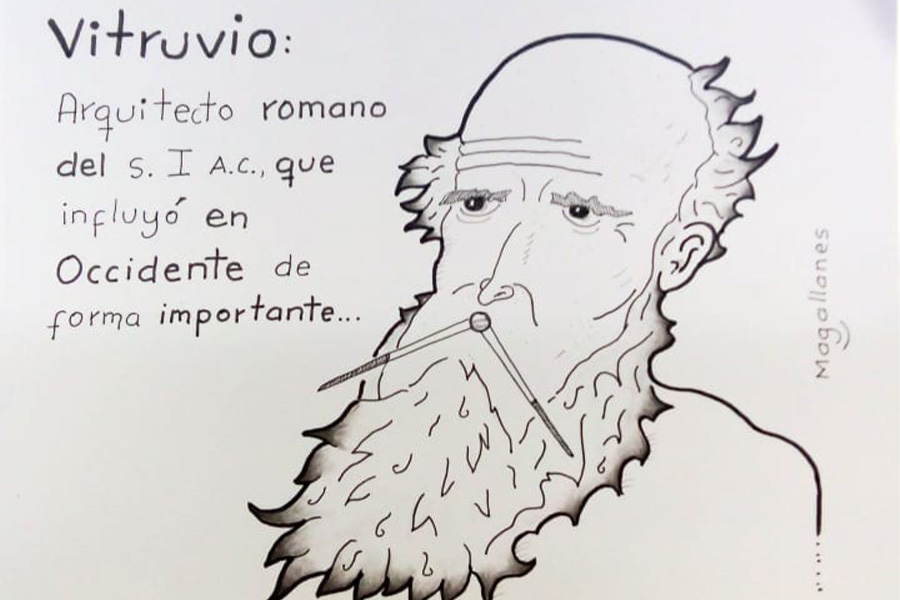 Vitruvio:
Arquitecto romano
del s. I A.C., que
influyó en
Occidente de
forma importante...
Magallanes